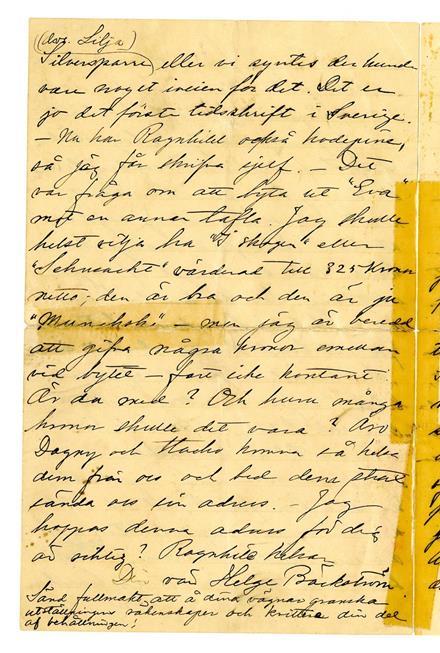 (doz. Lilja)
Silversparre) eller vi syntes der kunde
vare noget iveien for det. Det er
jo det förste tidsskrift i Sverige.
– Nu har Ragnhild också hodepine,
så jag får skrifva sjelf. – Det
var fråga om att byta ut "Eva"
mot en annan tafla. Jag skulle
helst vilja ha "I skogen" eller
"Sehnsucht" värderad till 325 Kronor
netto; den är bra och den är ju
"Munchsk" – men jag är beredd
att gifva några kronor emellan
vid bytet – fast icke kontant.
Är du med? Och huru många
kronor skulle det vara? Om
Dagny och Stacho komma så helsa
dem från oss och bed dem strax
sända oss sin adress. – Jag
hoppas denna adress för dig
är riktig? Ragnhild helsar
Din vän Helge Bäckström
Sänd fullmakt, att å dina vägnar granska
utställningens räkenskaper och kvittera din del
af behållningen!